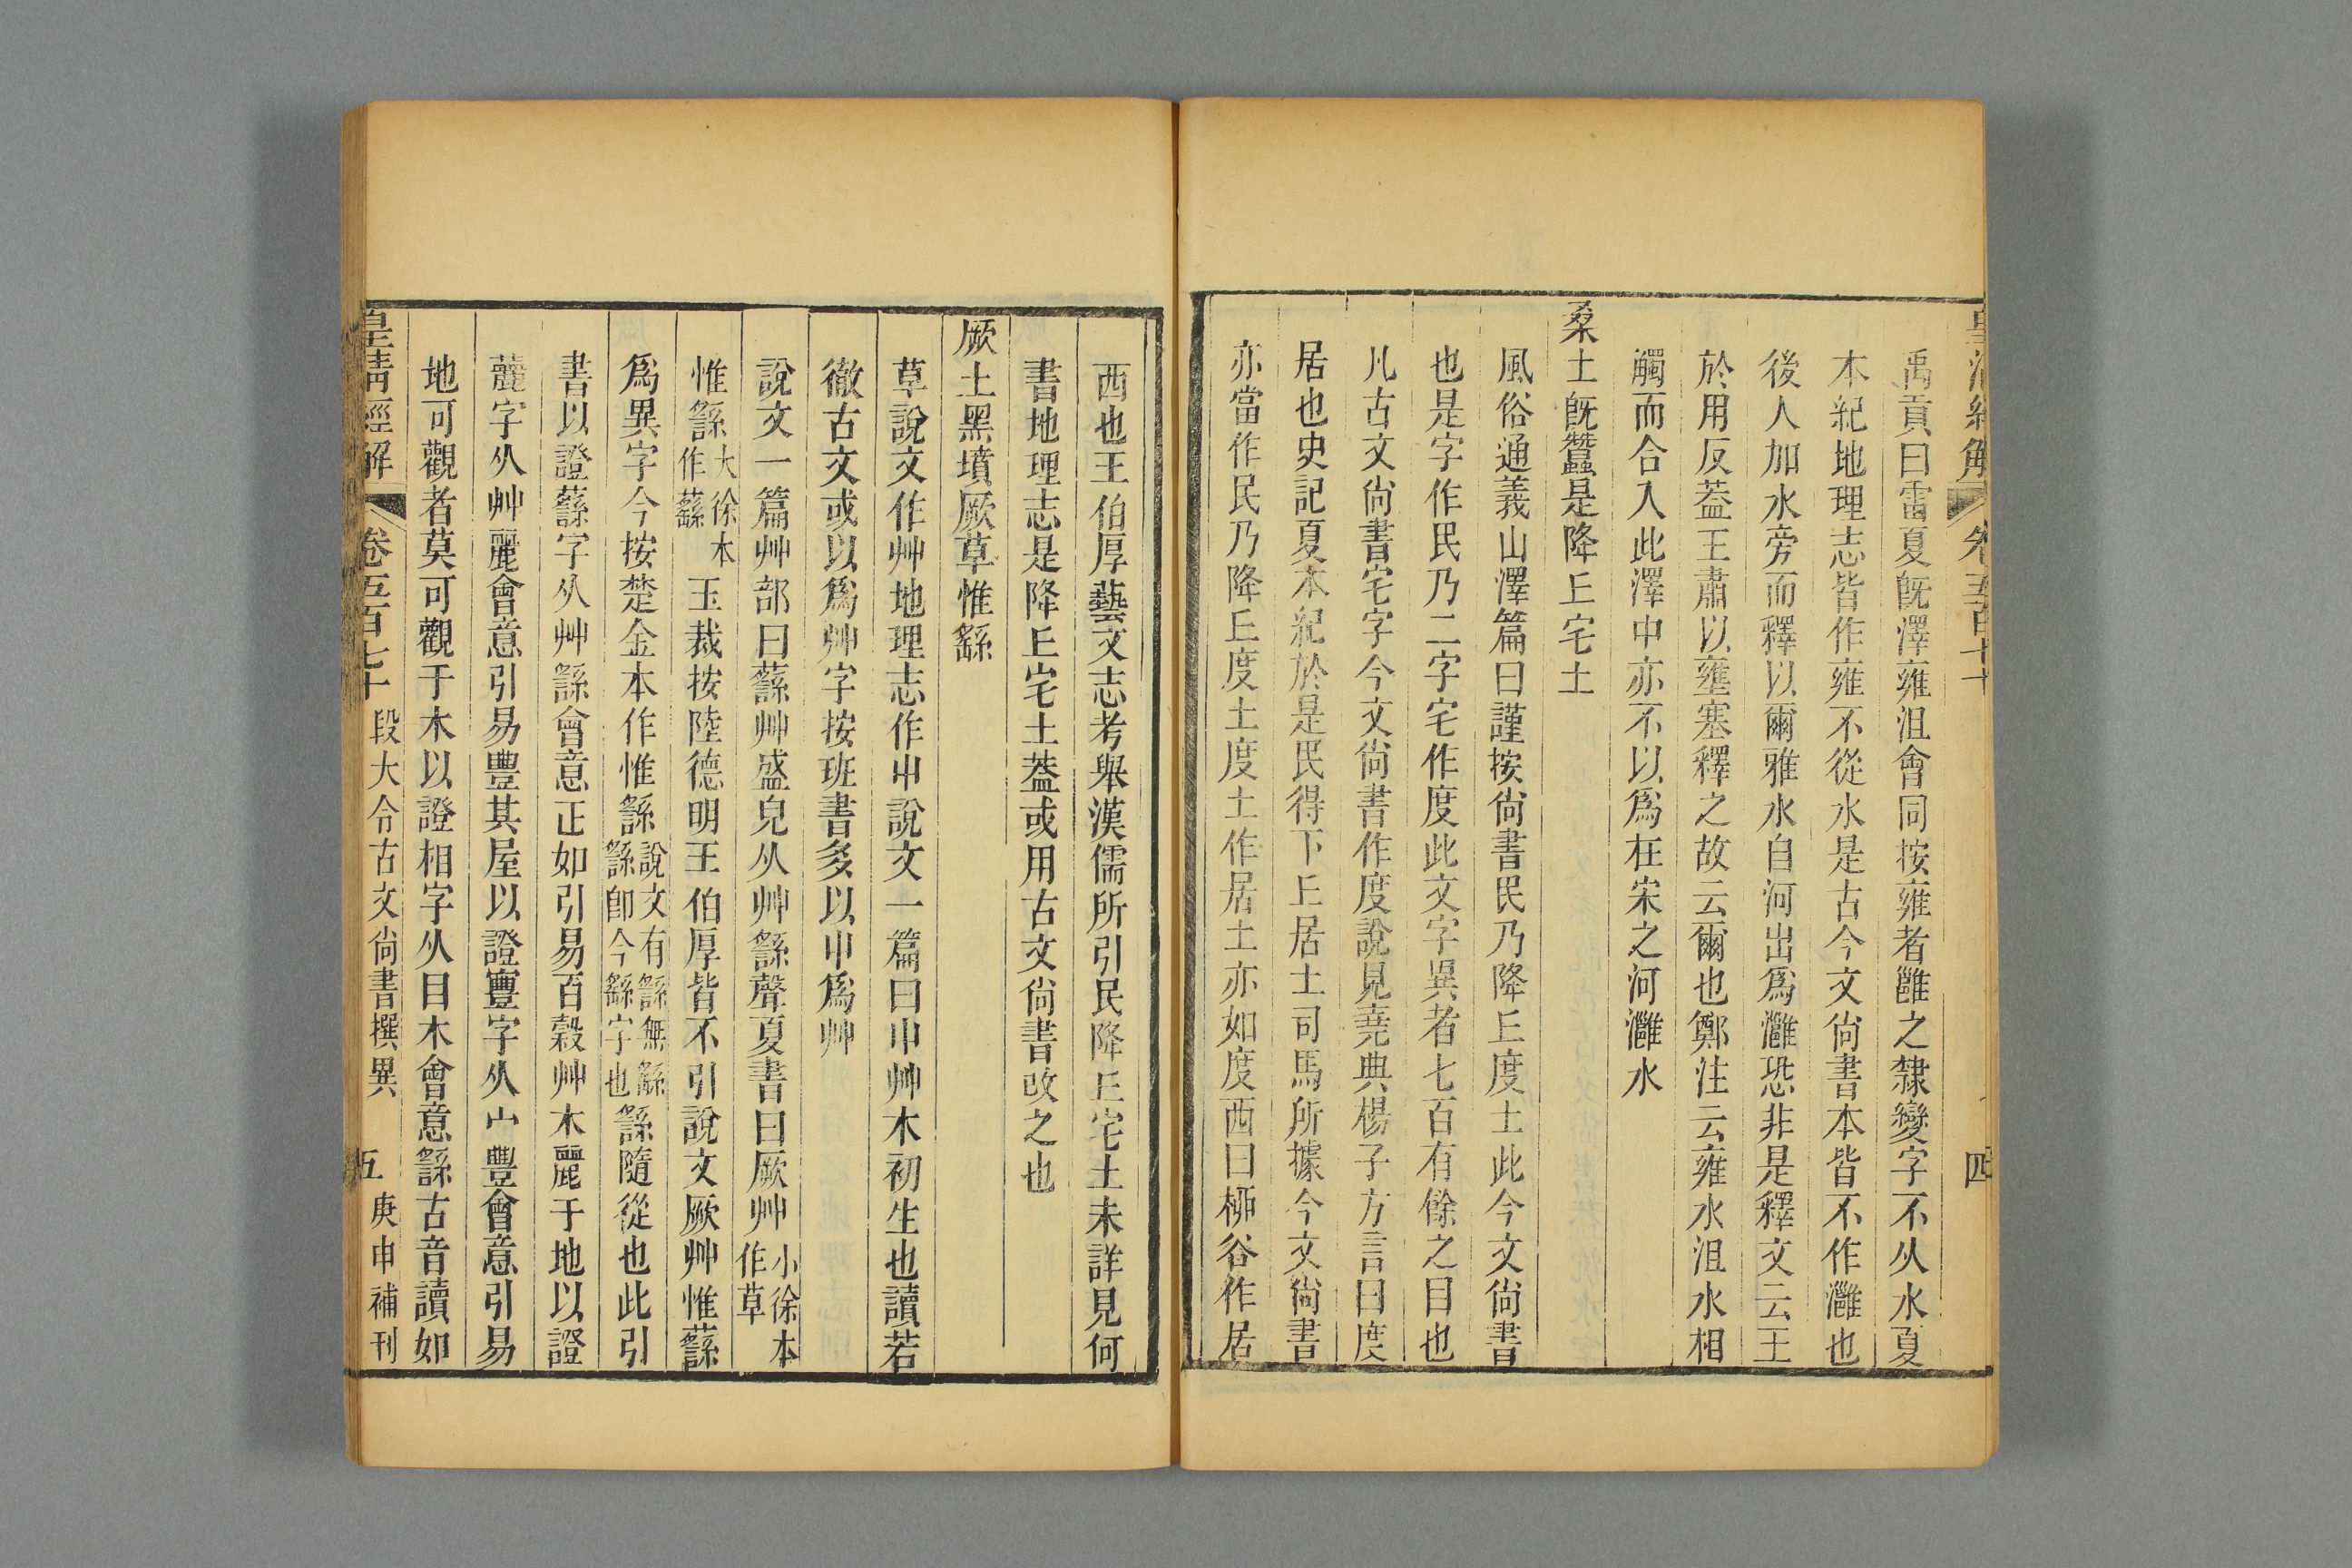 禹貢曰雷夏旣澤雍沮會同按雍者雝之隸變字不从水夏
本紀地理志皆作雍不從水是古今文尙書本皆不作灉也
後人加水旁而釋以爾雅水自河出爲灉恐非是釋文云王
於用反葢王肅以壅塞釋之故云爾也鄭注云雍水沮水相
觸而合入此澤中亦不以爲在宋之河灉水
桑土旣蠶是降丘宅土
風俗通義山澤篇曰謹按尙書民乃降丘度土此今文尙書
也是字作民乃二字宅作度此文字異者七百有餘之目也
凡古文尙書宅字今文尙書作度說見堯典楊子方言曰度
居也史記夏本紀於是民得下丘居土司馬所據今文尙書
亦當作民乃降丘度土度土作居土亦如度西曰桺谷作居
西也王伯厚藝文志考舉漢儒所引民降丘宅土未詳見何
書地理志是降丘宅土葢或用古文尙書改之也
厥土黑墳厥草惟繇
草說文作艸地理志作屮說文一篇曰屮艸木初生也讀若
徹古文或以爲艸字按班書多以屮爲艸
說文一篇艸部曰蘨艸盛皃从艸繇聲夏書曰厥艸小徐本作草
惟繇大徐本作蘨玉裁按陸德明王伯厚皆不引說文厥艸惟蘨
爲異字今按楚金本作惟繇說文有繇無繇繇卽今繇字也繇隨從也此引
書以證蘨字从艸繇會意正如引易百穀艸木麗于地以證
麗字从艸麗會意引易豐其屋以證寷字从宀豐會意引易
地可觀者莫可觀于木以證相字从目木會意繇古音讀如
皇淸經解 卷五百七十 段大令古文尙書撰異 五 庚申補刊